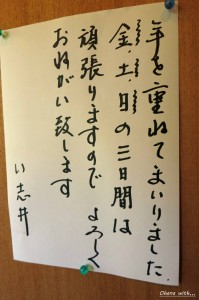 年を重ねてまいりました.
金、土、日の三日間は
頑張りますので よろしく
おねがい致します
い志井
Ohana with...